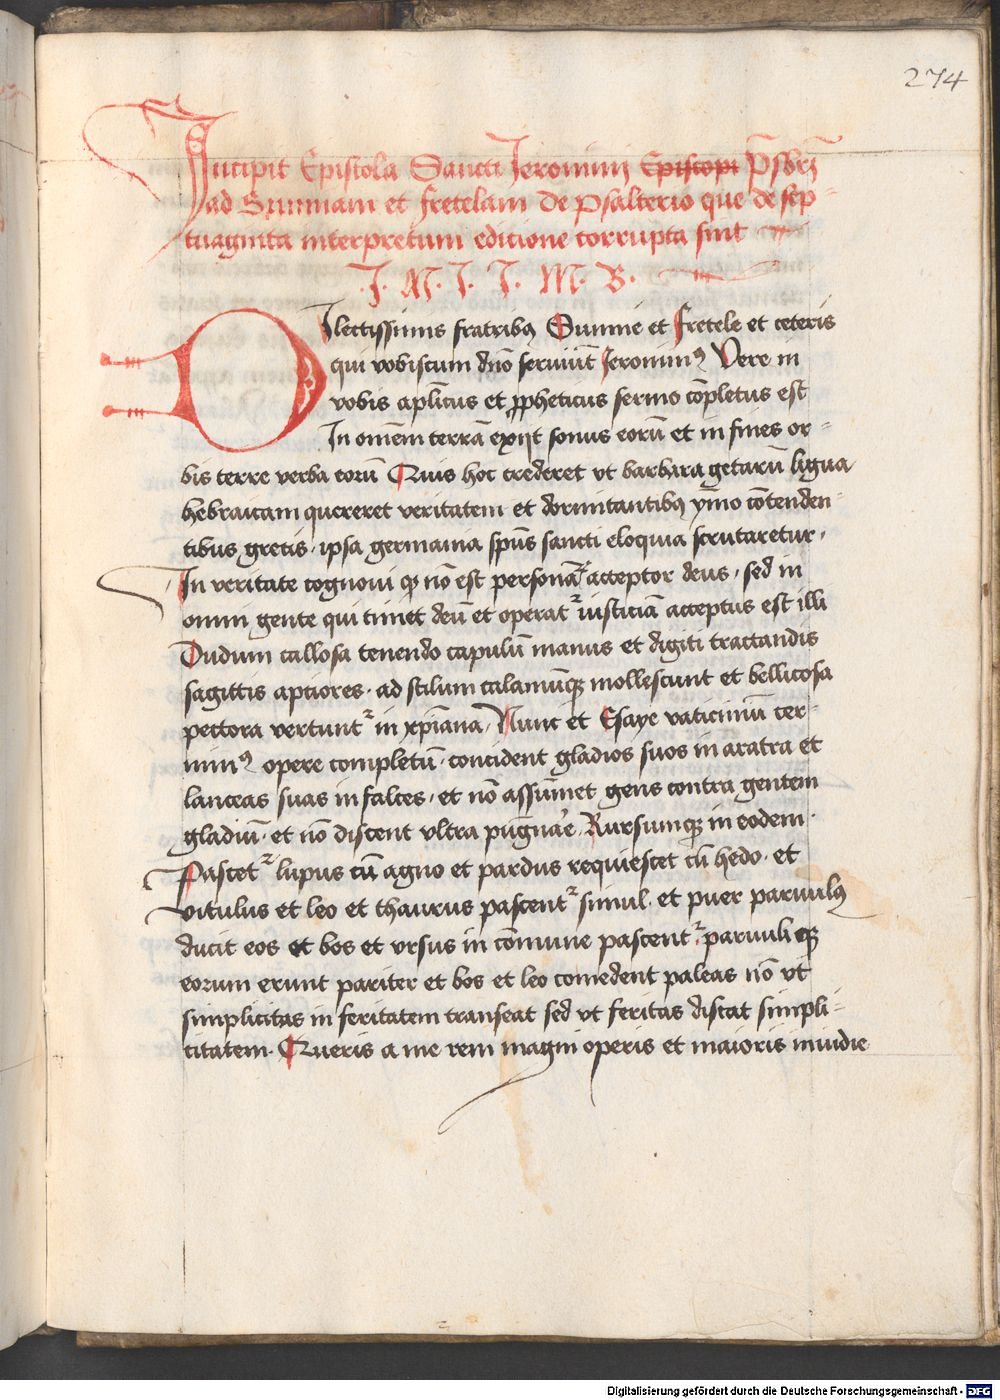 274
Incipit Epistola Sancti Jeronimi Episcopi Psbrj
ad Sunniam et fretelam de Psalterio que de sep-
tuaginta interpretum edicione corrupta sint
.J. N. J. J. M. B.
Dilectissimis fratribꝰ Sunnie et fretele et ceteris
qui vobiscum dño seruiūt Jeronimꝰ Vere in
vobis aplicus et ꝓpheticus sermo cōpletus est
In omēm terrā exijt sonus eorū et in fines or-
bis terre verba eorū Quis hoc crederet vt barbara getarū ligua
hebraicam quereret veritatem et dormitantibꝰ ymo cōtenden-
tibus grecis . ipsa germania spūs sancti eloquia scrutaretur .
In veritate cognoui qꝫ nō est personaꝝ acceptor deus . sed in
omni gente qui timet deū et operatᷣ iusticiā acceptus est illi
Dudum callosa tenendo capulū manus et digiti tractandis
sagittis aptiores . ad stilum calamūqꝫ mollescunt et bellicosa
pectora vertuntᷣ in xpiana . Nunc et Esaye vaticiniū cer-
nimꝰ opere completū . concident gladios suos in aratra et
lanceas suas in falces . et nō assūmet gens contra gentem
gladiū . et nō discent vltra pugnar̄e . Rursumqꝫ in eodem .
Pascetᷣ lupus cū agno et pardus requiescet cū hedo . et
vitulus et leo et thaurus pascentᷣ simul . et puer paruulꝰ
ducit eos et bos et vrsus in cōmune pascentᷣ . paruuli qꝫ
eorum erunt pariter et bos et leo comedent paleas nō vt
simplicitas in feritatem transeat sed vt feritas discat simpli-
citatem . Queris a me rem magni operis et maioris inuidie
Digitalisierung gefördert durch die Deutsche Forschungsgemeinschaft - DFG